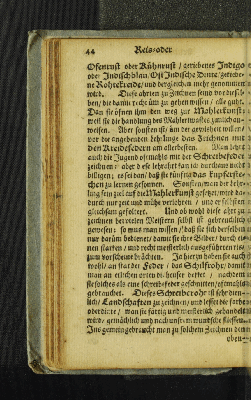 44 Reis-oder
Ofenruſt oder Kühnruſt / geriebenes Indigo
oder Indiſchblau. Oft Indiſche Dinte / geriebe-
ne Rohtekreide / und dergleichen mehr genommen
wird. Dieſe ahrten zu zeichnen ſeind vor dieſel-
ben / die damit recht üm zu gehen wiſſen / alle guht.
Das ſie öfnen ihm den weg zur Mahlerkunſt /
weil ſie die handlung des Mahlerwaſſers zimlich an-
weiſen. Aber ſonſten iſt vor
den angehenden lehrlinge das Zeichnen mit
den Kreidefedern am allerbeſten. Man lehret
auch die Jugend oftmahls mit der Schreibfeder
zeichnen / aber dieſe lehrahrt kan ich durchaus nicht
billigen / es ſei dan / daß ſie künftig das Kupferſte-
chen zu lernen geſonnen. Sonſten / wan der lehr-
ling ſein ziel auf die Mahlerkunſt geſetzet / wird da-
durch nur zeit und mühe verlohren / und er ſelbſten
gleichſam gefoltert. Und ob wohl dieſe ahrt zu
zeichnen bei vielen Meiſtern ſelbſt iſt gebreuchlich
geweſen; ſo mus man wiſſen / daß ſie ſich derſelben
nur darüm bedienet / damit ſie ihre Bilder / durch ei-
nen ſtarken / und recht meiſterlich ausgeführten ries /
zum vorſcheine brächten. Ja hierzu haben ſie auch
wohl / an ſtat der Feder / das Schilfrohr / womit
man an etlichen orten die heuſer decket / nachdem
ſie ſolches als eine ſchreibfeder geſchnitten / oftmahls
gebrauchet. Dieſes Schreiberohr iſt ſehr dien-
lich / Landſchaften zu zeichnen / und leſſet die ſtriche
oder dinte / wan ſie färtig und meiſterlich gehandelt
wird / gemählich und nach und nach
Ins gemein gebraucht man zu ſolchem Zeichnen den